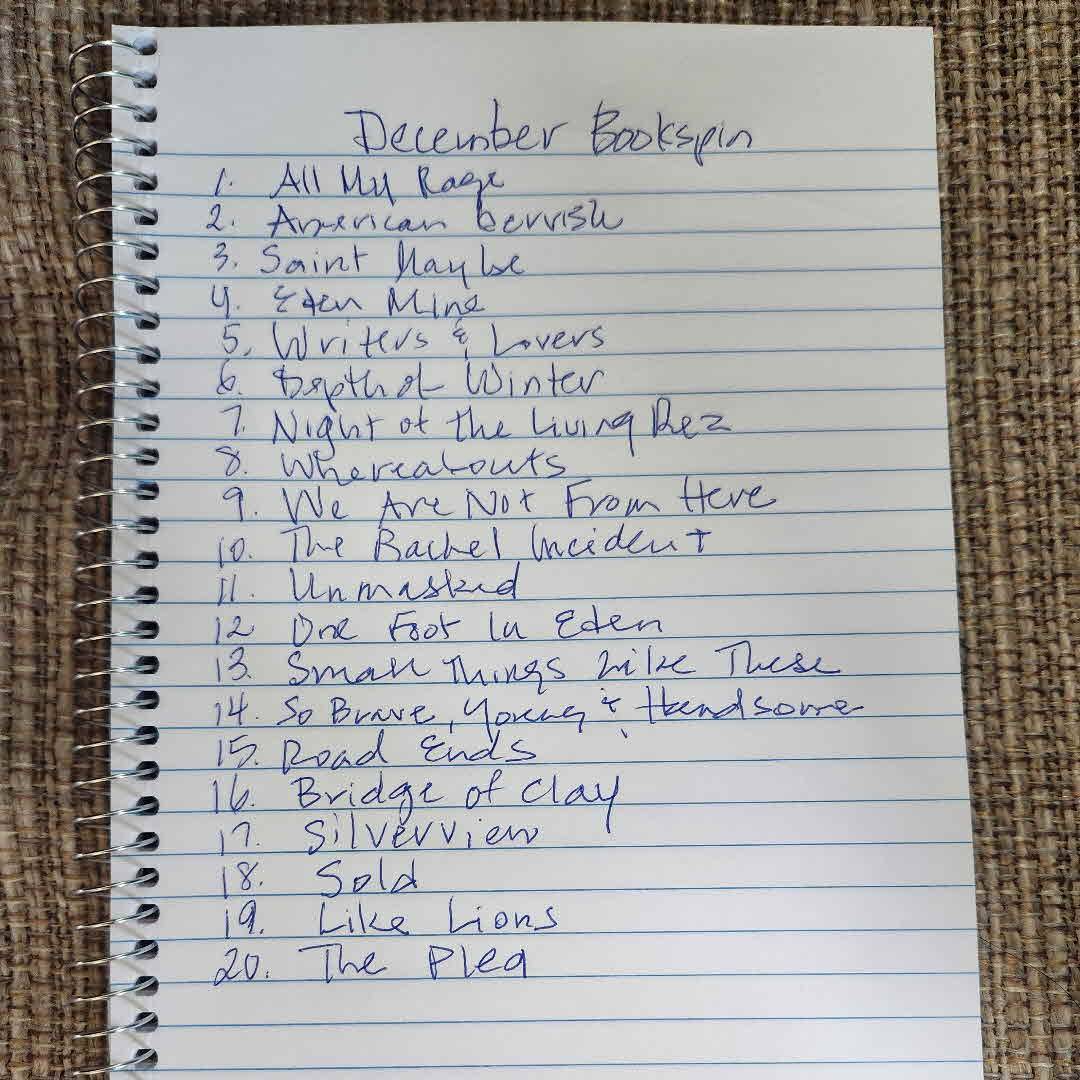 December Bookspin
1. All My Rage
2. American Gervish
3. Saint Maybe
4. Eden Mine
5. Writers & Lovers
6. Depth of Winter
7. Night of the Living Rez
8. Whereabouts
9. We Are Not From Here
10. The Rachel Incident
11. Unmasked
12 One Foot In Eden
13. Small Things Like These
14. So Brave, Young & Handsome
15. Road Ends
16. Bridge of Clay
17. Silverview
18. Sold
19. Like Lions
20. The Plea